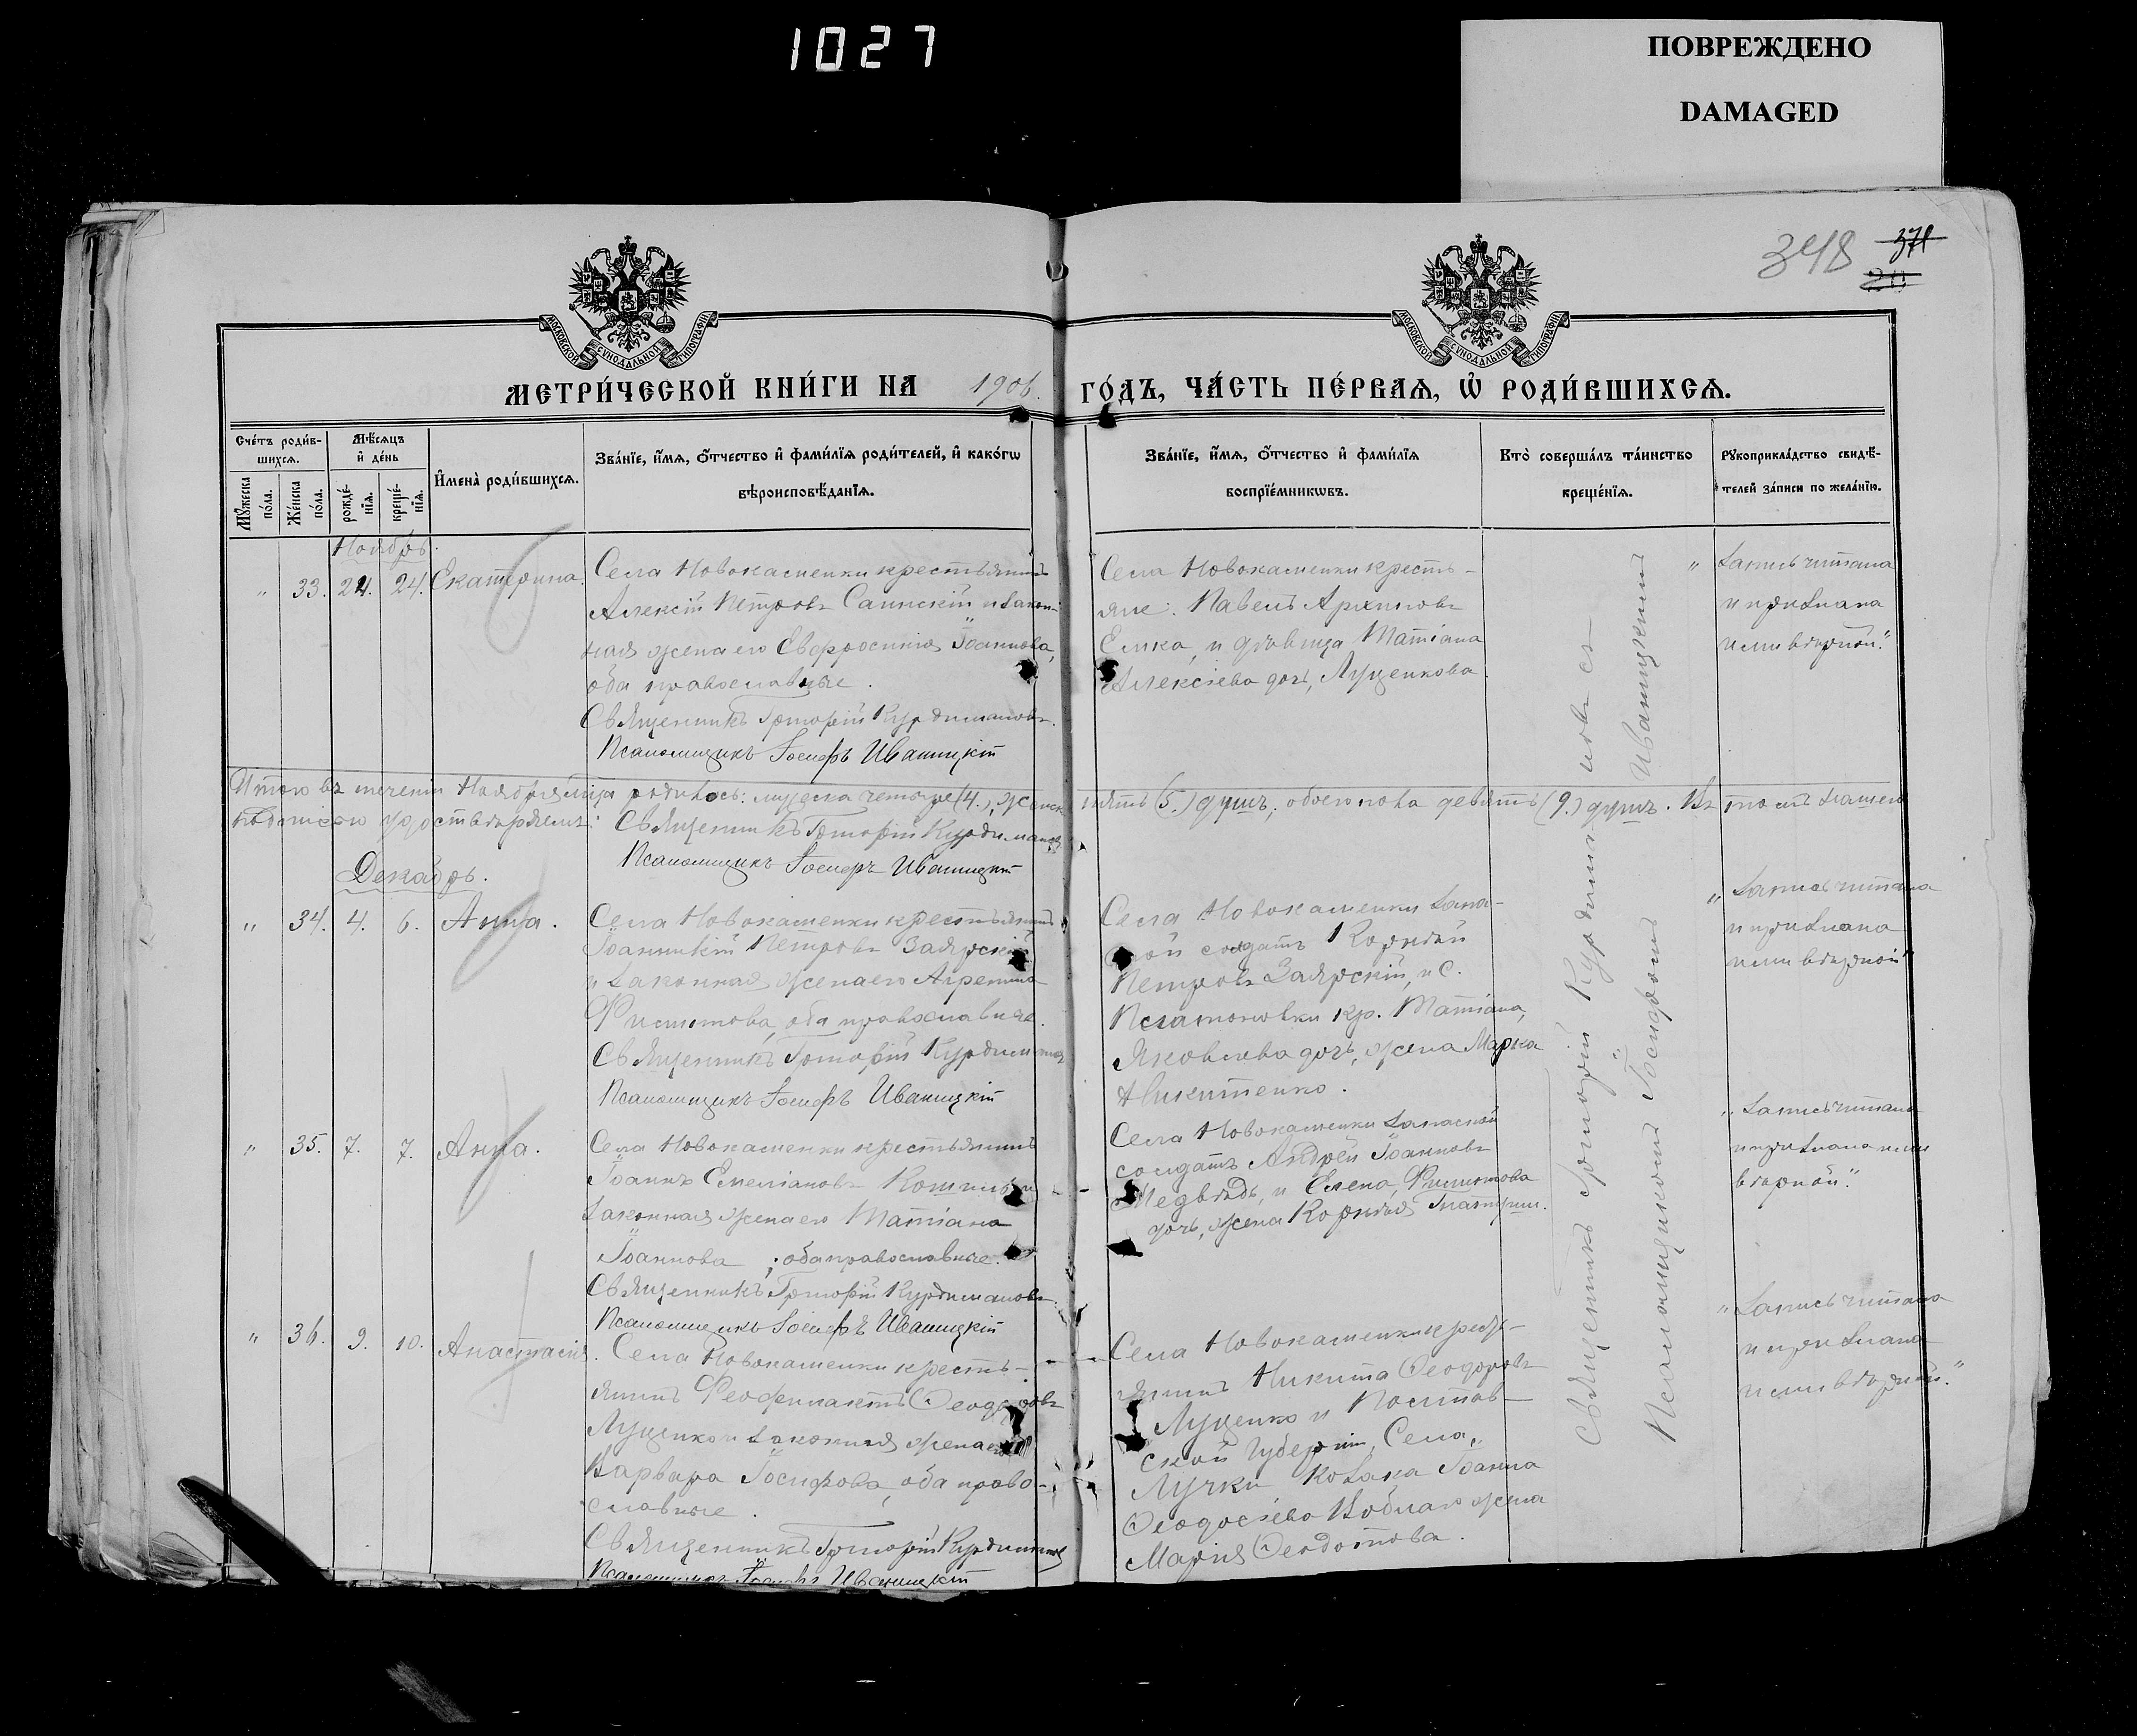 1027
ПОВРЕЖДЕНО
DAMAGED
348 371
МОСКОВСКОЙ СѴНОДАЛЬНОЙ ТИПОГРАФІИ
МОСКОВСКОЙ СѴНОДАЛЬНОЙ ТИПОГРАФІИ
МЕТРИ́ЧЕСКОЙ КНИ́ГИ НА 1906. ГО́ДЪ, ЧА́СТЬ ПЕ́РВАѦ, Ѽ РОДИ́ВШИХСѦ.
Сче́тъ роди́в-
шихсѧ.
Мꙋ́жеска по́ла.
Же́нска по́ла.
Мѣ́сѧцъ и҆ де́нь
рожде́-нїѧ.
креще́-нїѧ.
И҆мена̀ роди́вшихсѧ.
Зва́нїе, и҆́мѧ, ѻ҆́тчество и҆ фами́лїѧ роди́телей, и҆ како́гѡ
вѣроисповѣ́данїѧ.
Зва́нїе, и҆́мѧ, ѻ҆́тчество и҆ фами́лїѧ
воспрїе́мникѡвъ.
Кто̀ соверша́лъ та́инство
креще́нїѧ.
Рꙋкоприкла́дство свидѣ́-
телей за́писи по жела́нїю.
Ноябрь.
" 33. 24. 24. Екатерина.
Села Новокаменки крестьянинъ
Алексій Петровъ Саинскій и закон-
ная жена его Евфросинія Іоаннова,
оба православные.
Священникъ Григорій Курдимановъ.
Псаломщикъ Іосифъ Иваницкій
Села Новокаменки кресть-
яне: Павелъ Архиповъ
Емка, и дѣвица Татіана
Алексіева дочь, Луценкова.
" Запись читана
и признана
нами вѣрной."
Итого въ теченіи Ноября м-ца родилось: мужеска четыре (4.), женск. пять (5.) душъ, обоего пола девять (9.) душъ. Въ томъ нашею
подписью удостовѣряемъ: Священникъ Григорій Курдимановъ
Псаломщикъ Іосифъ Иваницкій
Декабрь.
" 34. 4. 6. Анна.
Села Новокаменки крестьянинъ
Іоанникій Петровъ Заярскій
и законная жена его Агрепина
Филиппова, оба православные.
Священникъ Григорій Курдимановъ
Псаломщикъ Іосифъ Иваницкій
Села Новокаменки запа-
ной солдатъ Корнѣй
Петровъ Заярскій, и С.
Платоновки кр. Татіана,
Яковлева дочь, жена Марка
Никитенко.
" Запись читана
и признана
нами вѣрной"
" 35. 7. 7. Анна.
Села Новокаменки крестьянинъ
Іоаннъ Емеліановъ и
законная жена его Татіана
Іоаннова, оба православные.
Священникъ Григорій Курдимановъ.
Псаломщикъ Іосифъ Иваницкій
Села Новокаменки запасной
солдатъ Андрей Іоанновъ
Медвѣдь, и Елена, Филиппова
дочь, жена Корнѣя
" Запись читана
и признана нами
вѣрной."
" 36. 9. 10. Анастасія.
Села Новокаменки кресть-
янинъ Феофилактъ Ѳеодоровъ
Луценко и законная жена его
Варвара Іосифова, оба право-
славные.
Священникъ Григорій Курдимановъ
Псаломщикъ Іосифъ Иваницкій
Села Новокаменки кресть-
янинъ Никита Ѳеодоровъ
Луценко и Полтав-
ской губерніи, Села,
Лучки козака Іоанна
Ѳеодосіева жена
Марія Ѳеодотова.
" Запись читана
и признана
нами вѣрной."
Священникъ Григорій Курдимановъ съ
Псаломщикомъ Іосифомъ Иваницкимъ